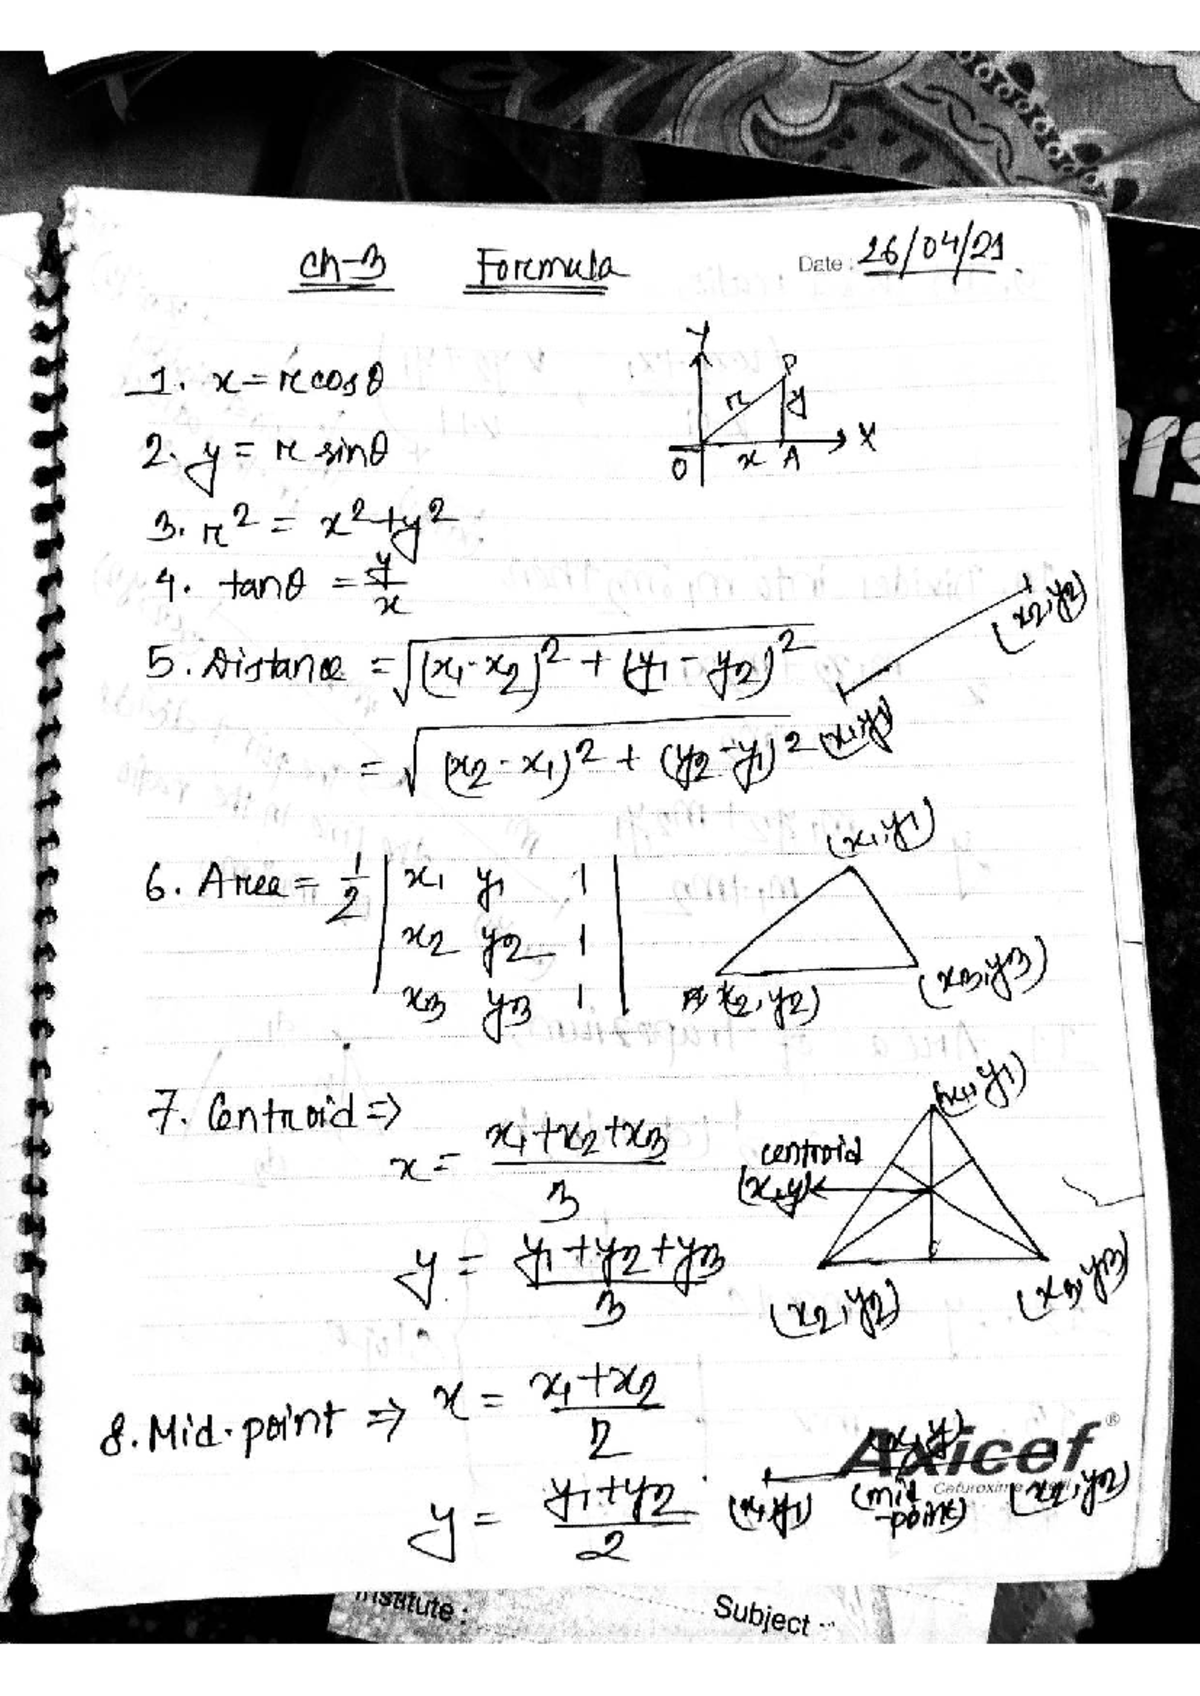 Ch-3 Formula Date: 26/04/21
Y
1. x = r cosθ
P
r y
2. y = r sinθ
O x A X
3. r² = x²+y²
4. tanθ = y/x
5. Distance = √(x₁-x₂)² + (y₁-y₂)²
(x₂,y₂)
= √(x₂-x₁)² + (y₂-y₁)²
(x₁,y₁)
6. Area = 1/2 | x₁ y₁ 1 |
| x₂ y₂ 1 |
| x₃ y₃ 1 |
(x₁,y₁)
x₂,y₂)
(x₃,y₃)
7. Centroid ⇒
x = x₁+x₂+x₃/3
y = y₁+y₂+y₃/3
(x₁,y₁)
centroid
(x,y)
(x₂,y₂)
(x₃,y₃)
8. Mid-point ⇒ x = x₁+x₂/2
y = y₁+y₂/2
(x,y)
(x₁,y₁)
(mid
-point)
(x₂,y₂)
Axicef®
Cefuroxime
Institute :
Subject